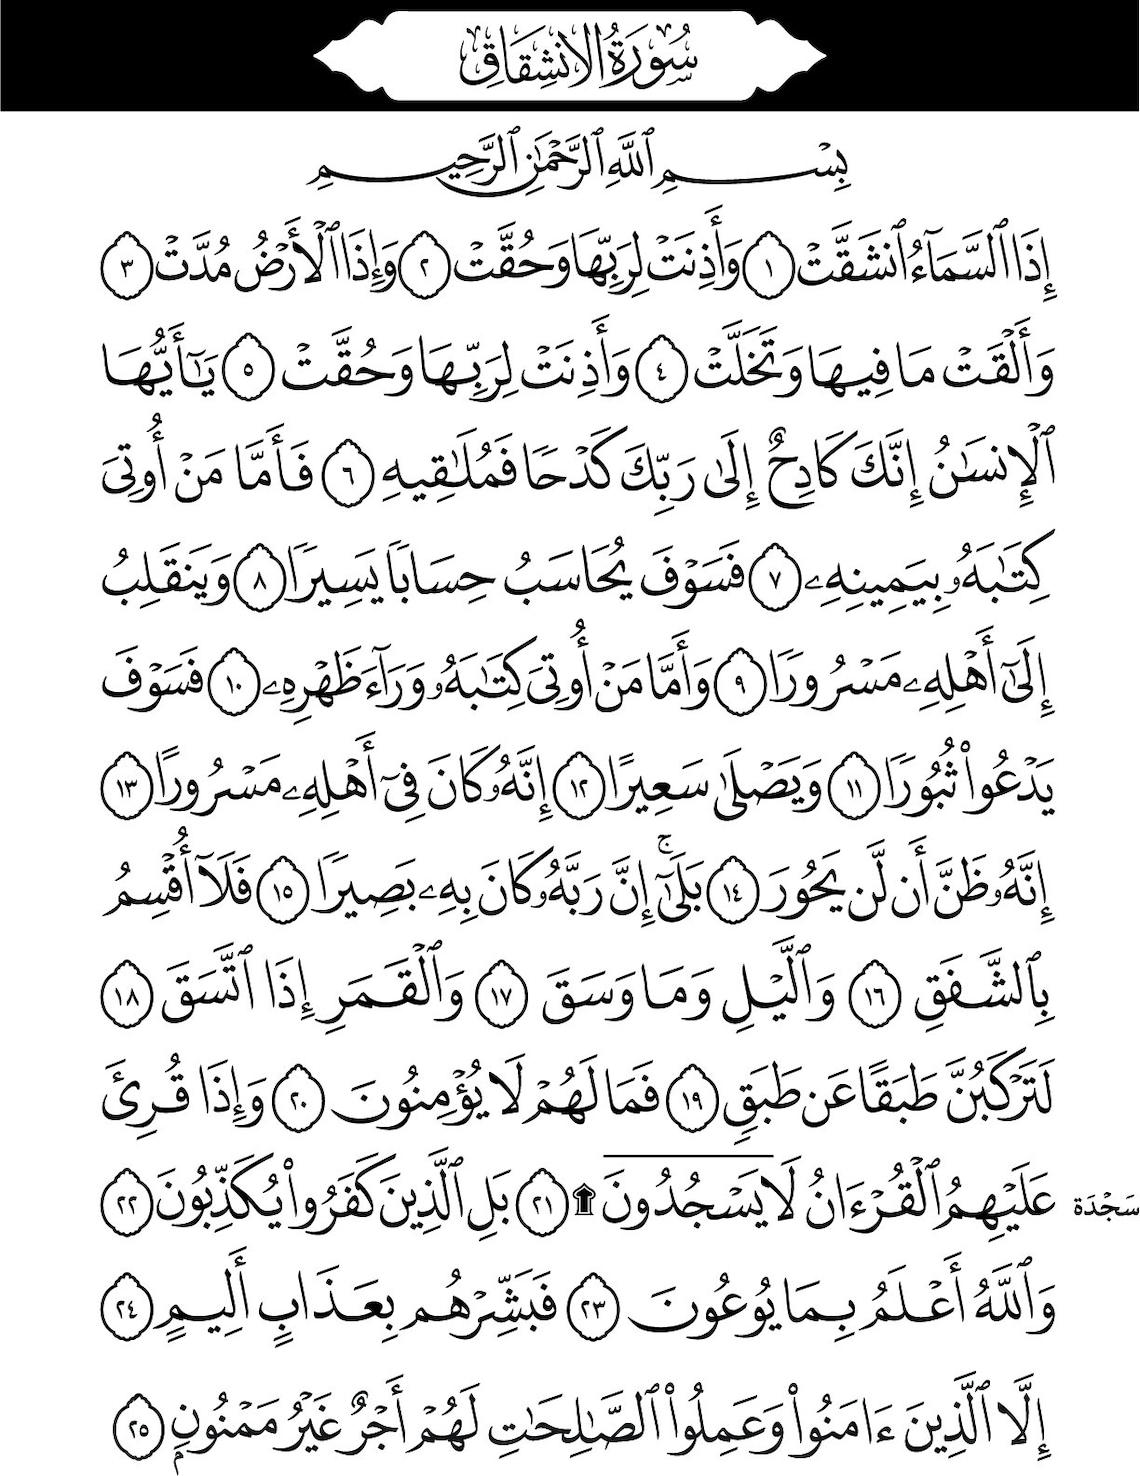 سُورَةُ الانشِقَاقِ
بِسْمِ ٱللَّهِ ٱلرَّحْمَٰنِ ٱلرَّحِيمِ
إِذَا ٱلسَّمَآءُ ٱنشَقَّتْ ١ وَأَذِنَتْ لِرَبِّهَا وَحُقَّتْ ٢ وَإِذَا ٱلْأَرْضُ مُدَّتْ ٣
وَأَلْقَتْ مَا فِيهَا وَتَخَلَّتْ ٤ وَأَذِنَتْ لِرَبِّهَا وَحُقَّتْ ٥ يَٰٓأَيُّهَا
ٱلْإِنسَٰنُ إِنَّكَ كَادِحٌ إِلَىٰ رَبِّكَ كَدْحًا فَمُلَٰقِيهِ ٦ فَأَمَّا مَنْ أُوتِىَ
كِتَٰبَهُۥ بِيَمِينِهِۦ ٧ فَسَوْفَ يُحَاسَبُ حِسَابًا يَسِيرًا ٨ وَيَنقَلِبُ
إِلَىٰٓ أَهْلِهِۦ مَسْرُورًا ٩ وَأَمَّا مَنْ أُوتِىَ كِتَٰبَهُۥ وَرَآءَ ظَهْرِهِۦ ١٠ فَسَوْفَ
يَدْعُوا۟ ثُبُورًا ١١ وَيَصْلَىٰ سَعِيرًا ١٢ إِنَّهُۥ كَانَ فِىٓ أَهْلِهِۦ مَسْرُورًا ١٣
إِنَّهُۥ ظَنَّ أَن لَّن يَحُورَ ١٤ بَلَىٰٓۚ إِنَّ رَبَّهُۥ كَانَ بِهِۦ بَصِيرًا ١٥ فَلَآ أُقْسِمُ
بِٱلشَّفَقِ ١٦ وَٱلَّيْلِ وَمَا وَسَقَ ١٧ وَٱلْقَمَرِ إِذَا ٱتَّسَقَ ١٨
لَتَرْكَبُنَّ طَبَقًا عَن طَبَقٍ ١٩ فَمَا لَهُمْ لَا يُؤْمِنُونَ ٢٠ وَإِذَا قُرِئَ
عَلَيْهِمُ ٱلْقُرْءَانُ لَا يَسْجُدُونَ ۩ ٢١ بَلِ ٱلَّذِينَ كَفَرُوا۟ يُكَذِّبُونَ ٢٢
سَجْدَة
وَٱللَّهُ أَعْلَمُ بِمَا يُوعُونَ ٢٣ فَبَشِّرْهُم بِعَذَابٍ أَلِيمٍ ٢٤
إِلَّا ٱلَّذِينَ ءَامَنُوا۟ وَعَمِلُوا۟ ٱلصَّٰلِحَٰتِ لَهُمْ أَجْرٌ غَيْرُ مَمْنُونٍۭ ٢٥